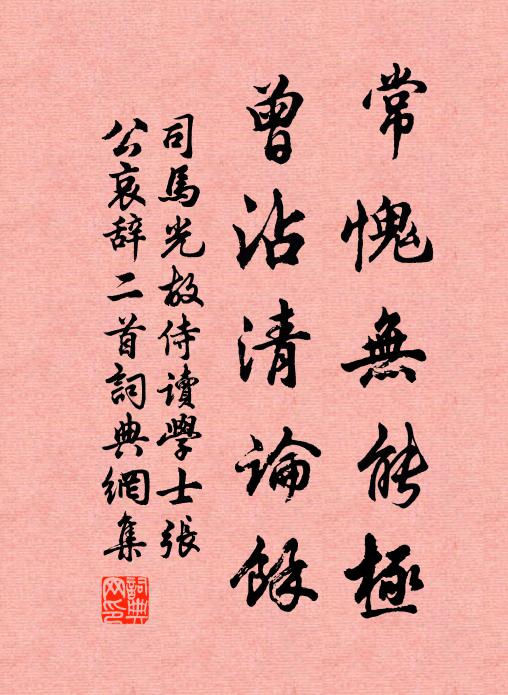 常愧無能極
曾沾清論餘
司馬光故侍讀學士張
公哀辞二首詞典網集
詞典网印